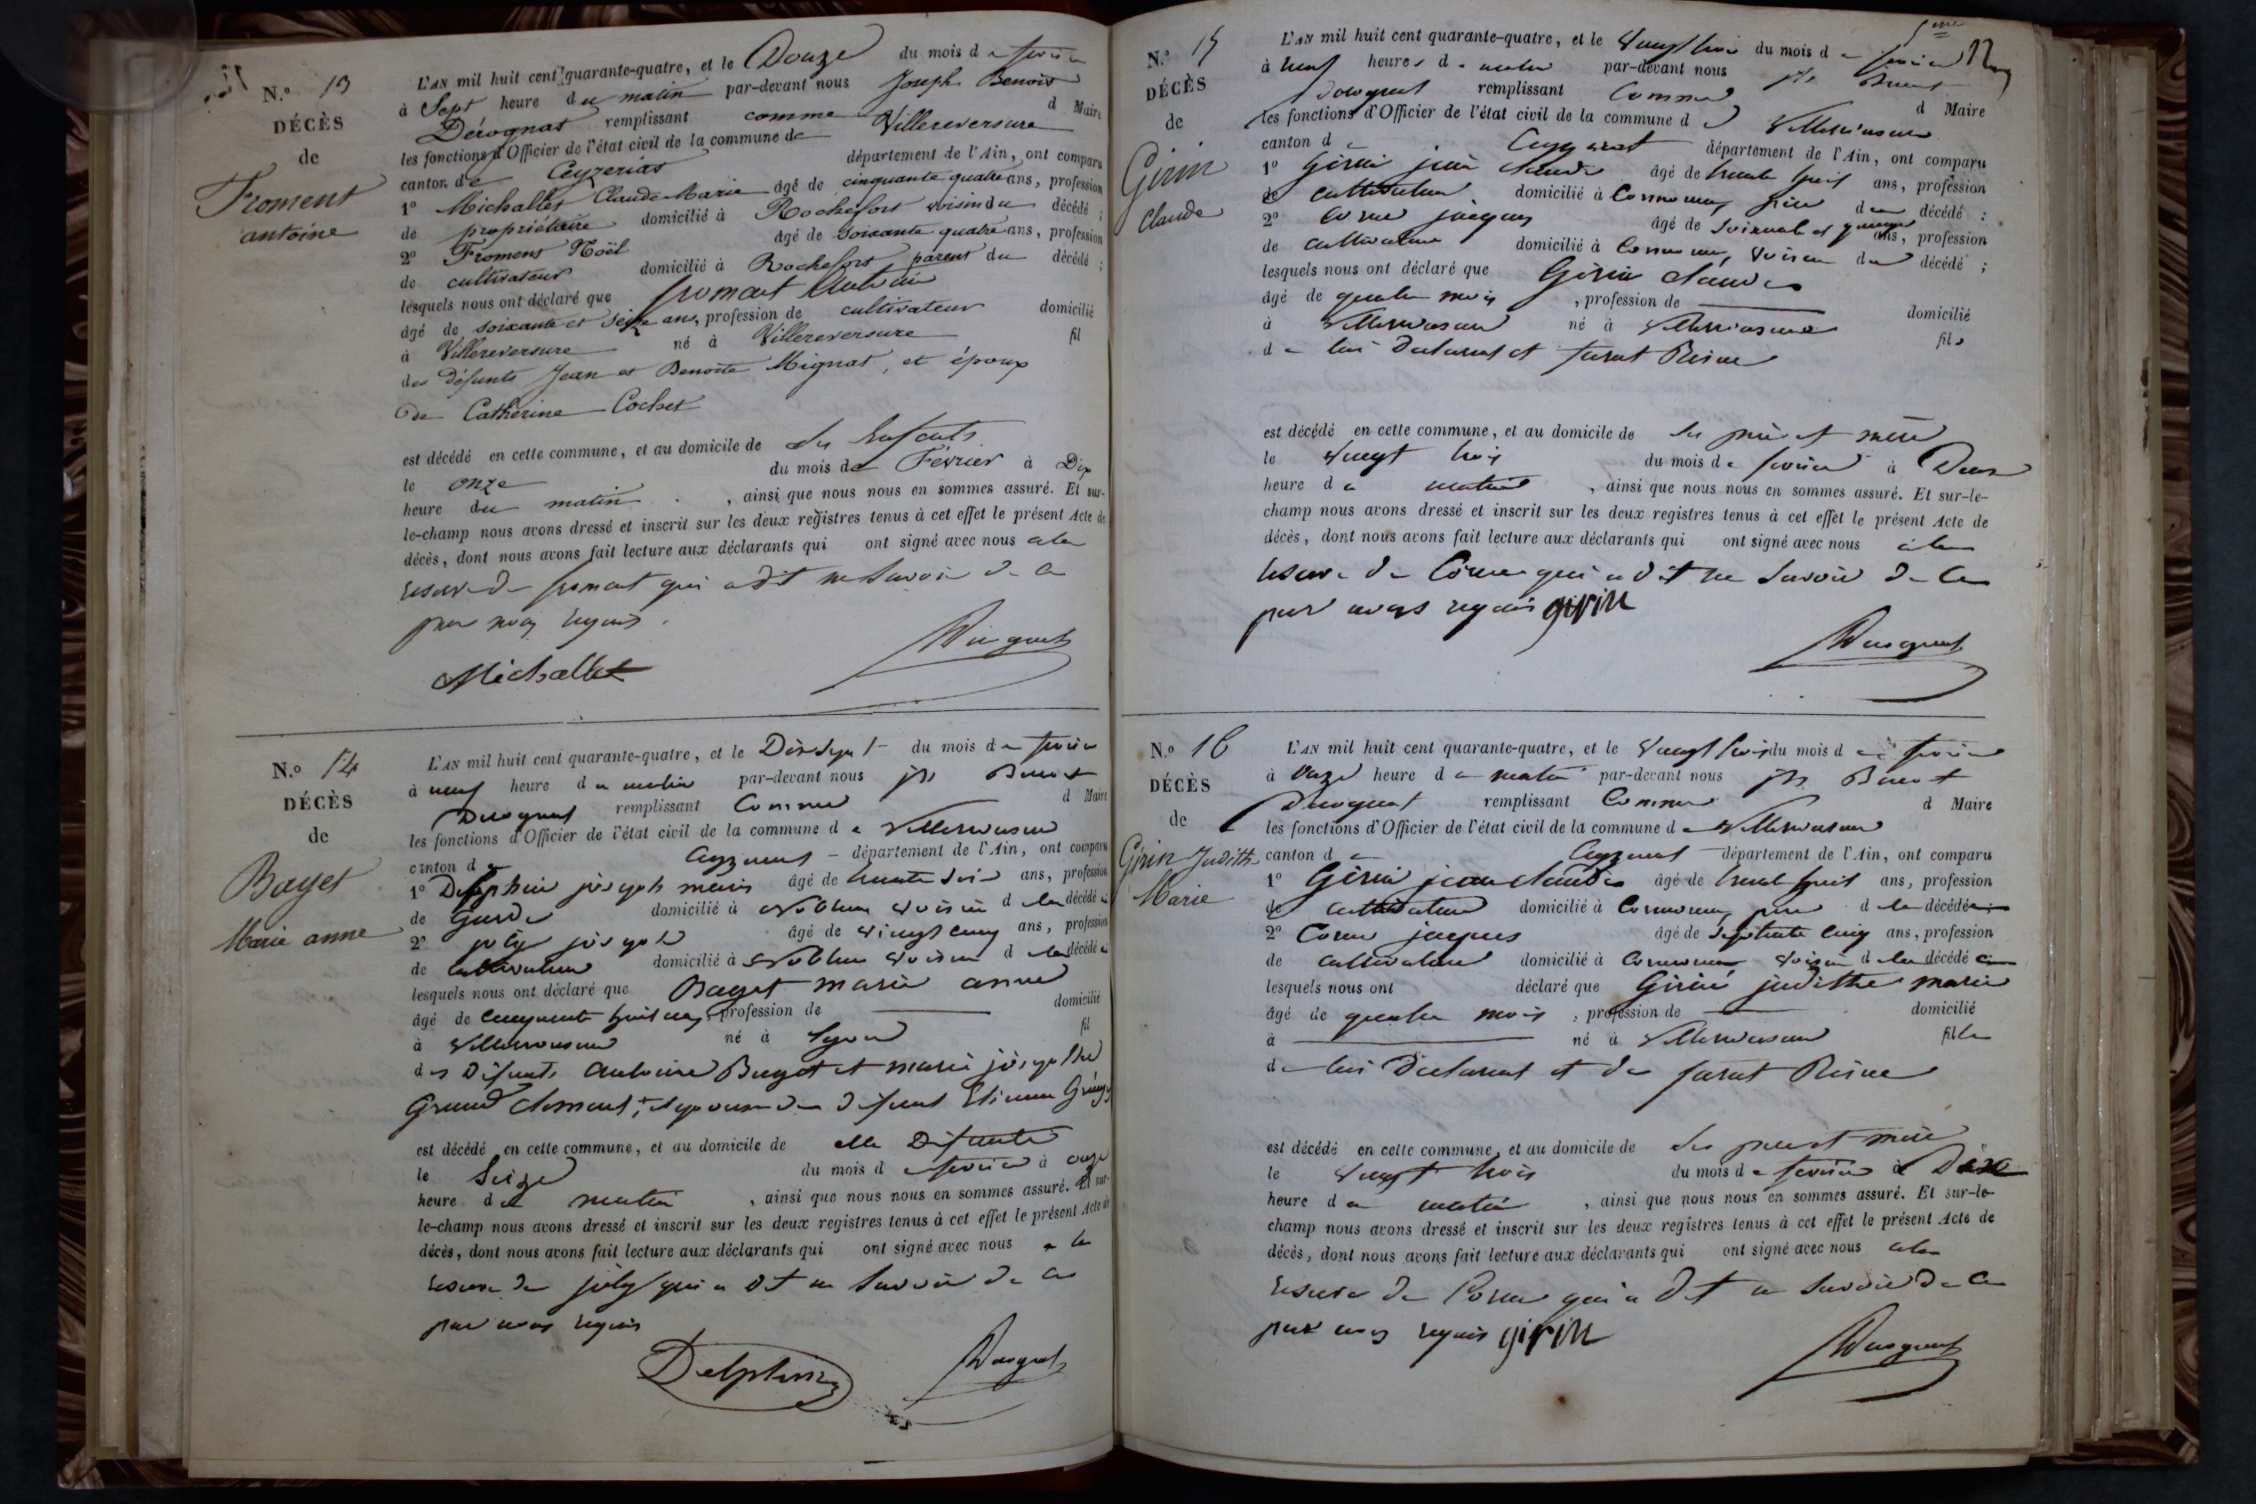 N.º 13
DÉCÈS
de
Froment
antoine
L'AN mil huit cent quarante-quatre, et le Douze du mois de février
à Sept heure du matin par-devant nous Joseph Benoit
Dérognat remplissant comme d Maire
les fonctions d'Officier de l'état civil de la commune de Villereversure
canton de Ceyzerias département de l'Ain, ont comparu
1º Michallet Claude Marie âgé de cinquante quatre ans, profession
de propriétaire domicilié à Rochefort voisin du décédé ;
2º Froment Noël âgé de soixante quatre ans, profession
de cultivateur domicilié à Rochefort parent du décédé ;
lesquels nous ont déclaré que froment Antoine
âgé de soixante et seize ans, profession de cultivateur domicilié
à Villereversure né à Villereversure fil
des défunts Jean et Benoite Mignat, et époux
de Catherine Cochet
est décédé en cette commune, et au domicile de ses Enfants
le onze du mois de Février à Dix
heure du matin, ainsi que nous nous en sommes assuré. Et sur-
le-champ nous avons dressé et inscrit sur les deux registres tenus à cet effet le présent Acte de
décès, dont nous avons fait lecture aux déclarants qui ont signé avec nous à la
reserve de froment qui a dit ne savoir de ce
par nous requis.
Michallet
N.º 14
DÉCÈS
de
Bayet
Marie anne
L'AN mil huit cent quarante-quatre, et le Dix sept du mois de février
à neuf heure du matin par-devant nous jph Benoit
Derognat remplissant Comme d Maire
les fonctions d'Officier de l'état civil de la commune de Villereversure
canton de Ceyzeriat département de l'Ain, ont comparu
1º Delphin joseph marie âgé de trente ans, profession
de Garde domicilié à voisin de la décédée
2º joly joseph âgé de vingt cinq ans, profession
de cultivateur domicilié à voisin de la décédée
lesquels nous ont déclaré que Bayet marie anne
âgé de cinquante huit ans, profession de domicilié
à Villereversure né à Lyon fil
des Défunts Antoine Bayet et marie josephte
Grand clement, et epouse de défunt Etienne
est décédé en cette commune, et au domicile de elle Défunte
le Seize du mois de février à onze
heure du matin, ainsi que nous nous en sommes assuré. Et sur-
le-champ nous avons dressé et inscrit sur les deux registres tenus à cet effet le présent Acte de
décès, dont nous avons fait lecture aux déclarants qui ont signé avec nous à la
reserve de joly qui a dit ne savoir de ce
par nous requis
Delphin
N.º 15
DÉCÈS
de
Girin
Claude
L'AN mil huit cent quarante-quatre, et le vingt trois du mois de février
à neuf heures du matin par-devant nous jph Benoit
Derognat remplissant Comme d Maire
les fonctions d'Officier de l'état civil de la commune de Villereversure
canton de Ceyzeriat département de l'Ain, ont comparu
1º Girin jean claude âgé de trente huit ans, profession
de cultivateur domicilié à père du décédé ;
2º Corne jacques âgé de soixante et quinze ans, profession
de cultivateur domicilié à voisin du décédé ;
lesquels nous ont déclaré que Girin claude
âgé de quatre mois, profession de domicilié
à Villereversure né à Villereversure fils
de lui Déclarant et Reine
est décédé en cette commune, et au domicile de ses père et mère
le vingt trois du mois de février à Deux
heure du matin, ainsi que nous nous en sommes assuré. Et sur-le-
champ nous avons dressé et inscrit sur les deux registres tenus à cet effet le présent Acte de
décès, dont nous avons fait lecture aux déclarants qui ont signé avec nous à la
reserve de Corne qui a dit ne savoir de ce
par nous requis girin
N.º 16
DÉCÈS
de
Girin Judith
Marie
L'AN mil huit cent quarante-quatre, et le vingt trois du mois de février
à onze heure du matin par-devant nous jph Benoit
Derognat remplissant Comme d Maire
les fonctions d'Officier de l'état civil de la commune de Villereversure
canton de Ceyzeriat département de l'Ain, ont comparu
1º Girin jean claude âgé de trente huit ans, profession
de cultivateur domicilié à père de la décédée
2º Corne jacques âgé de septante cinq ans, profession
de cultivateur domicilié à voisin de la décédée
lesquels nous ont déclaré que Girin judithe marie
âgé de quatre mois, profession de domicilié
à né à Villereversure fille
de lui Déclarant et de Reine
est décédé en cette commune, et au domicile de ses père et mère
le vingt trois du mois de février à Dix
heure du matin, ainsi que nous nous en sommes assuré. Et sur-le-
champ nous avons dressé et inscrit sur les deux registres tenus à cet effet le présent Acte de
décès, dont nous avons fait lecture aux déclarants qui ont signé avec nous à la
reserve de Corne qui a dit ne savoir de ce
par nous requis girin